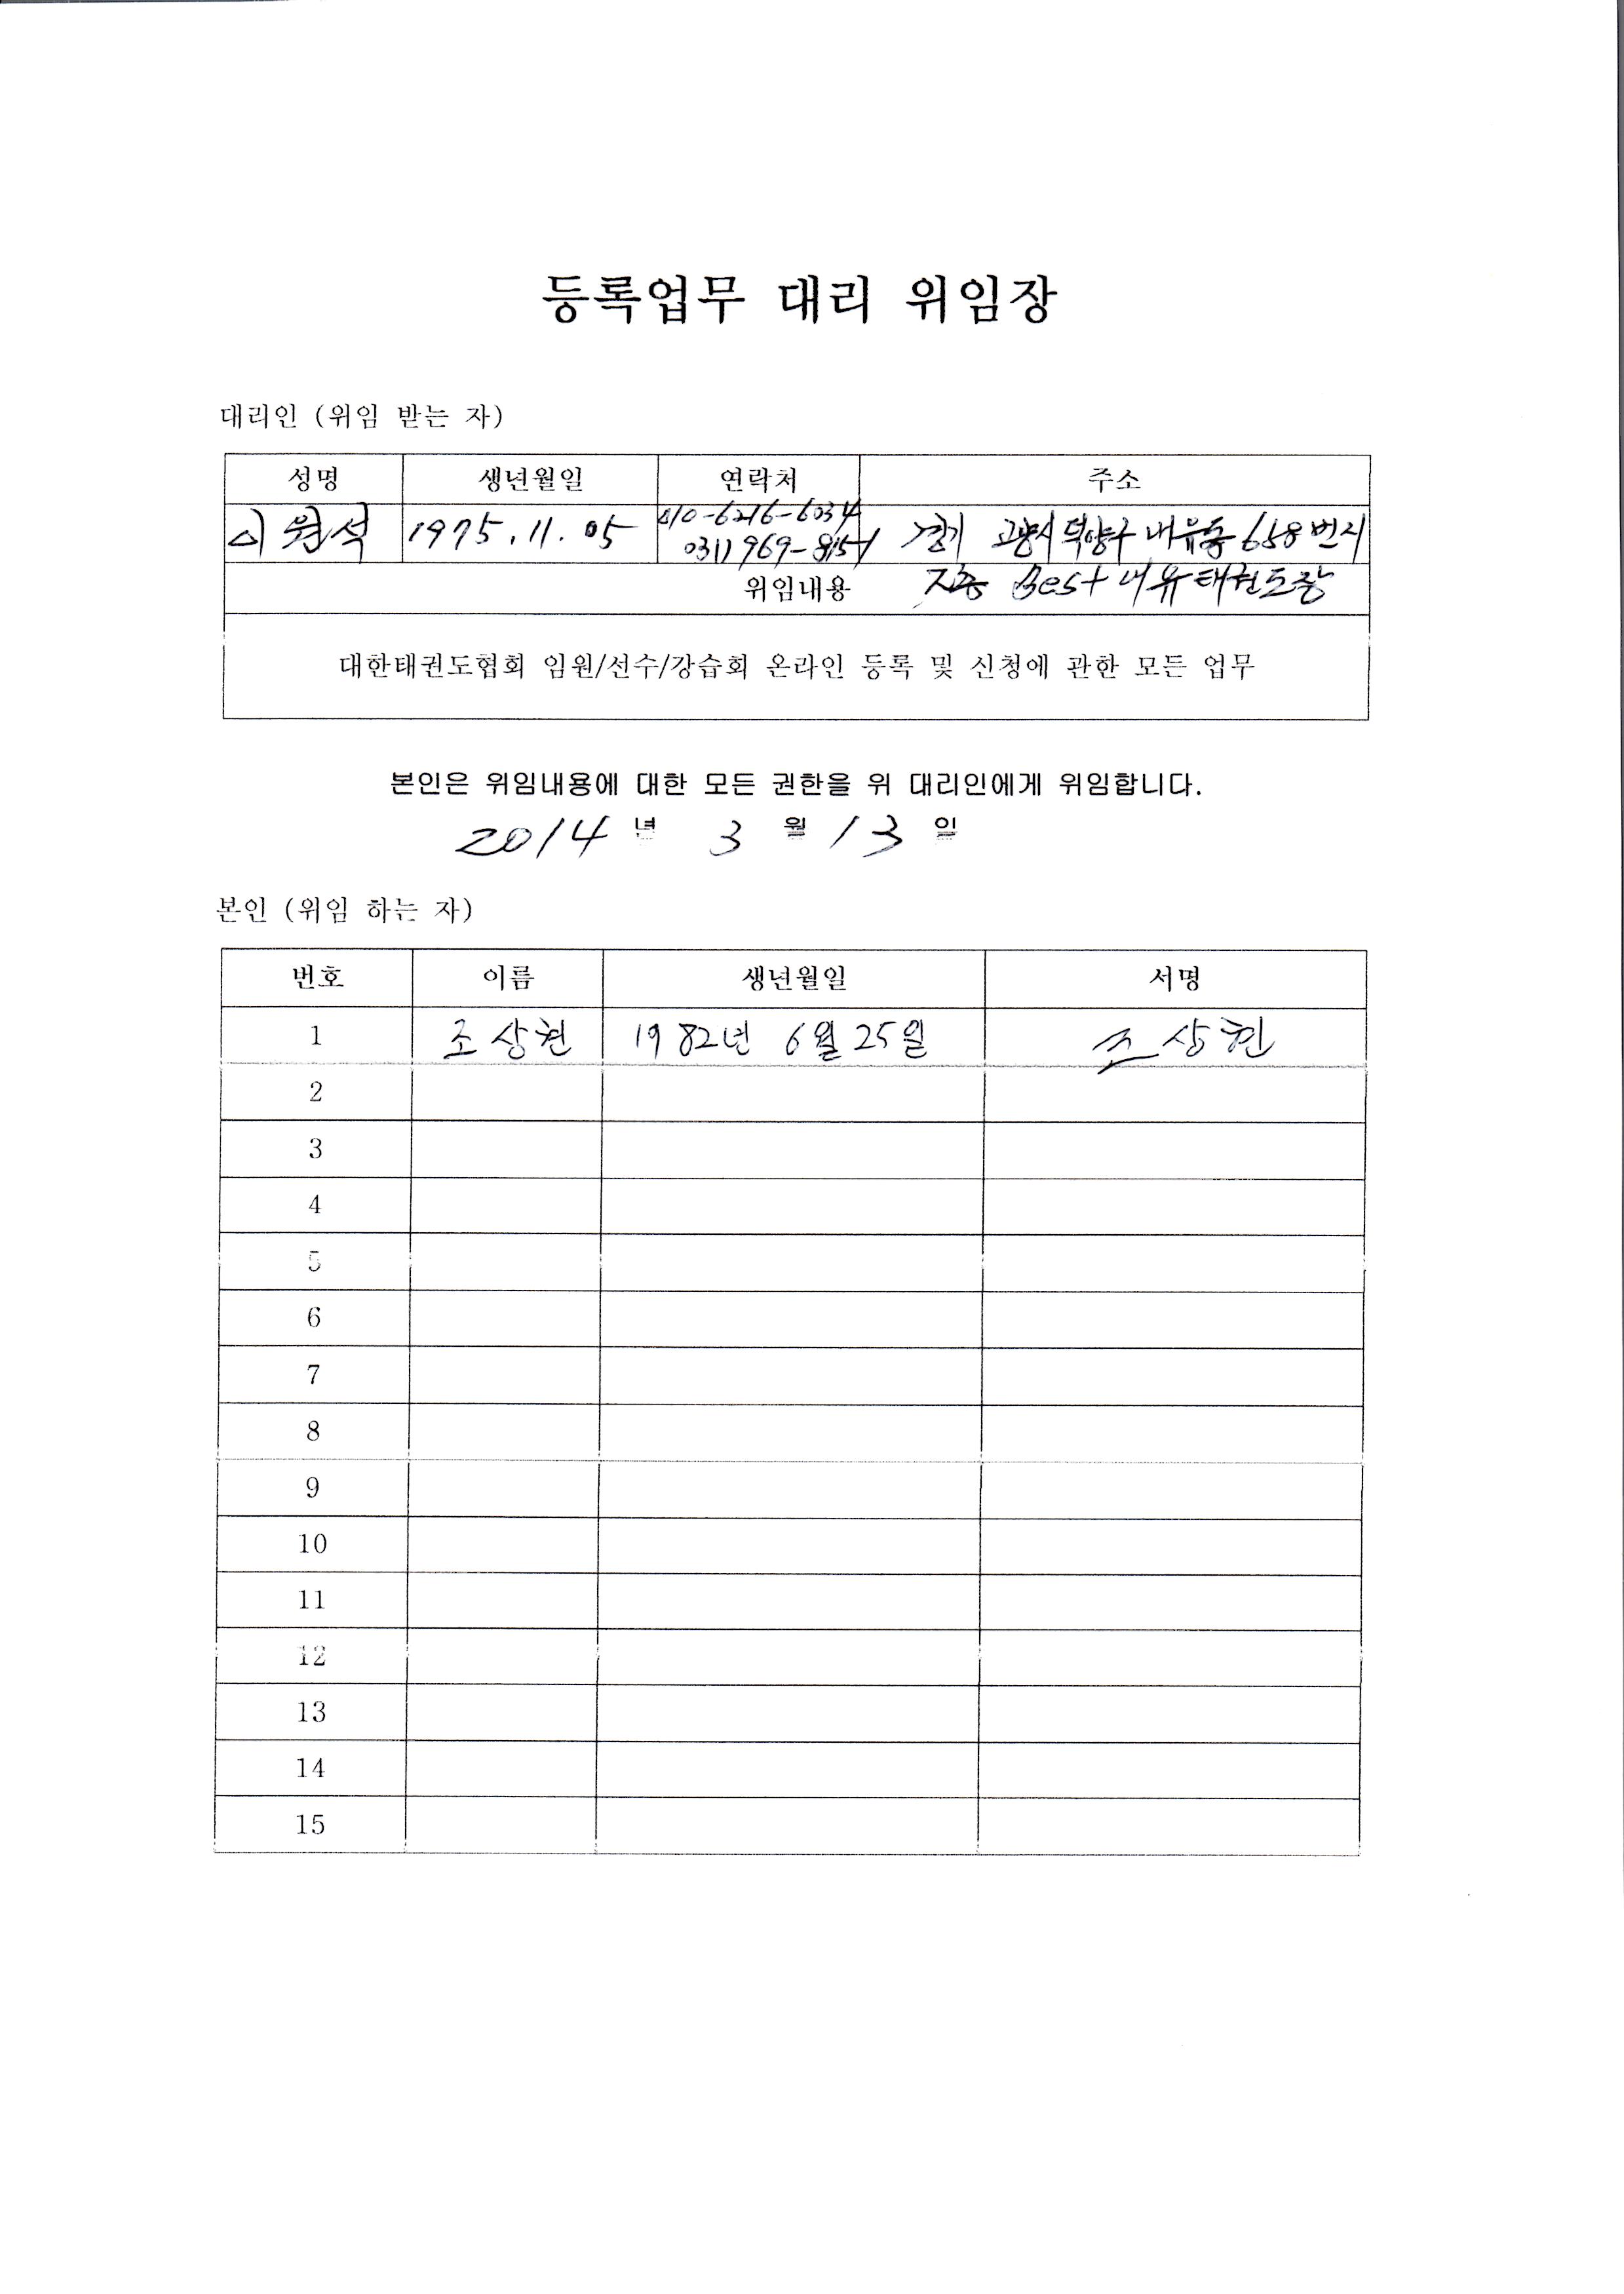 등록업무 대리 위임장
대리인 (위임 받는 자)
성명 생년월일 연락처 주소
이원석 1975.11.05 010-6216-6034 경기 고양시 덕양구 내유동 658번지
031) 969-8151
위임내용 지층 Best 내유태권도장
대한태권도협회 임원/선수/강습회 온라인 등록 및 신청에 관한 모든 업무
본인은 위임내용에 대한 모든 권한을 위 대리인에게 위임합니다.
2014 년 3 월 13 일
본인 (위임 하는 자)
번호 이름 생년월일 서명
1 조상현 1982년 6월 25일 조상현
2
3
4
5
6
7
8
9
10
11
12
13
14
15